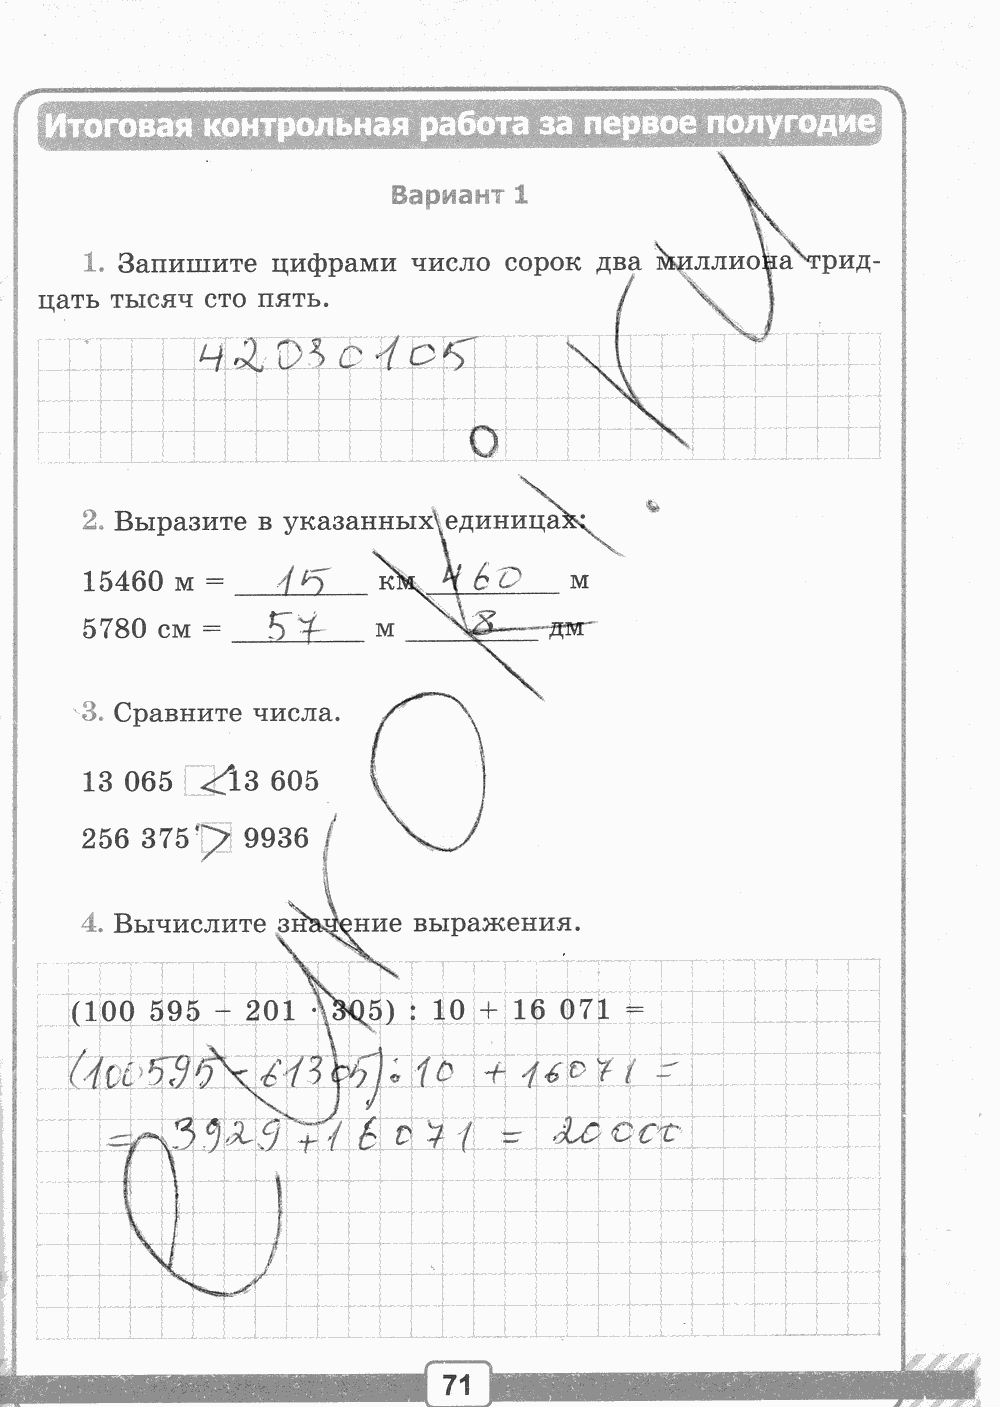 Итоговая контрольная работа за первое полугодие
Вариант 1
1. Запишите цифрами число сорок два миллиона трид-
цать тысяч сто пять.
42030105
2. Выразите в указанных единицах:
15460 м = 15 км 460 м
5780 см = 57 м 8 дм
3. Сравните числа.
13 065 < 13 605
256 375 > 9936
4. Вычислите значение выражения.
(100 595 – 201 · 305) : 10 + 16 071 =
(100595 - 61305) : 10 + 16071 =
= 3929 + 16071 = 20000
71